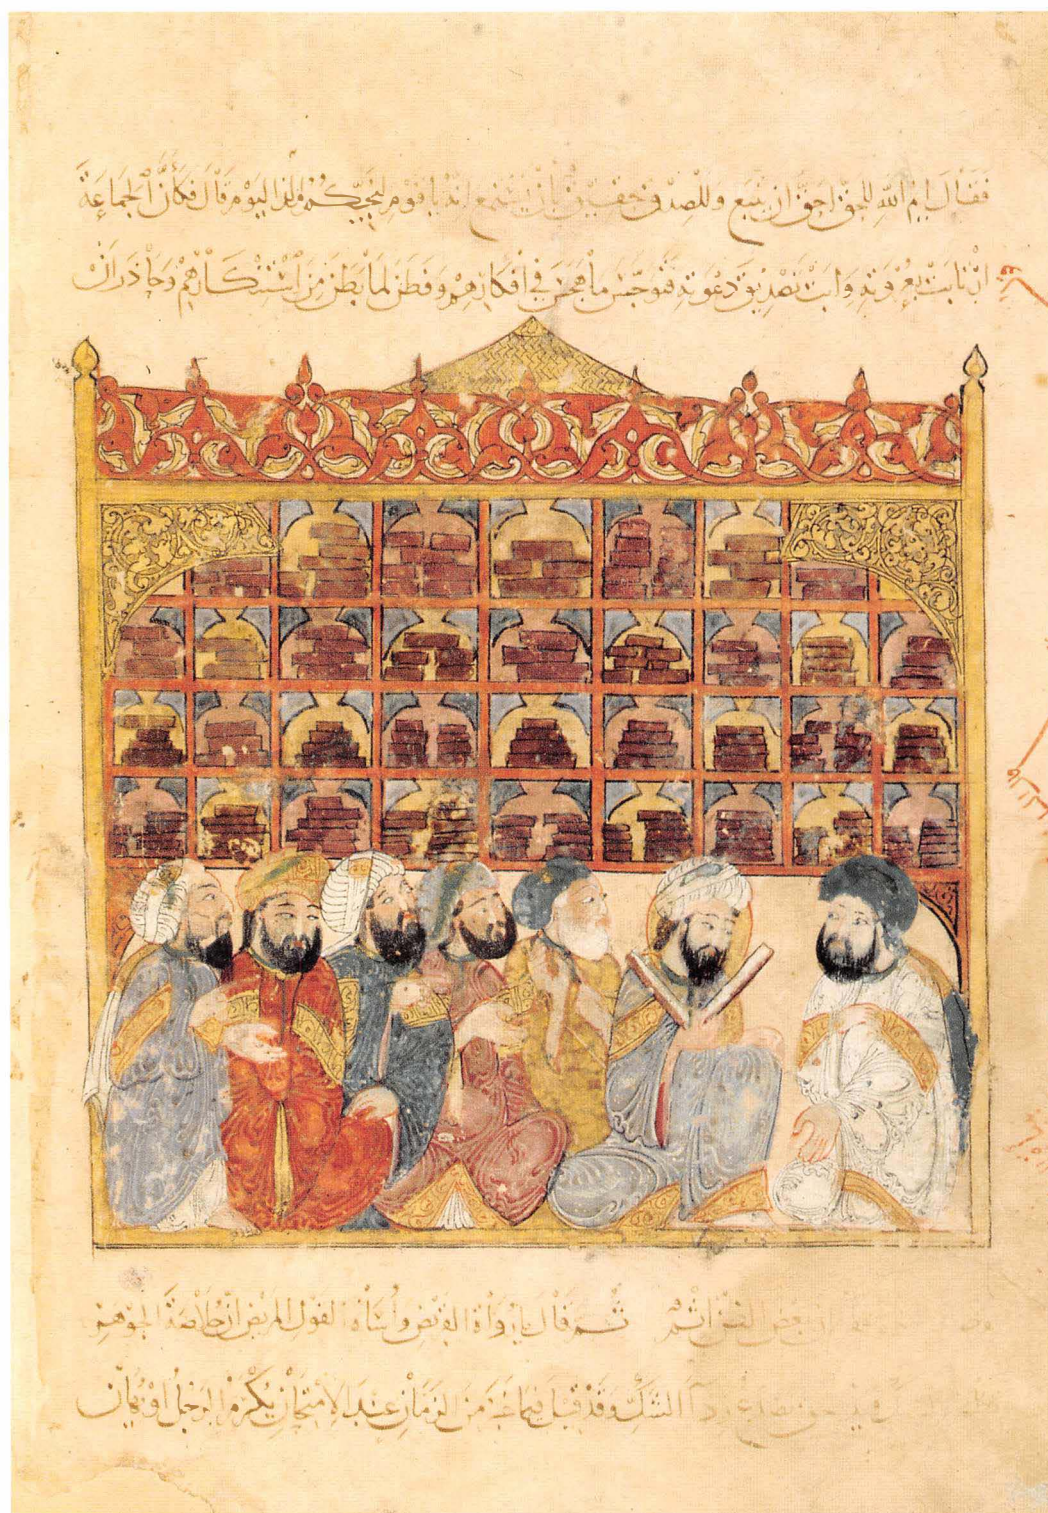 فَقَالَ ايم اللهِ للحقّ احقّ ان يتبع وللصدق حقيق بان يستمع انه يا قوم لنجيّكم مذ اليوم قال فكأنّ الجماعة
ارتابت بعزوته وابت تصديق دعوته فتوجّس ما هجس في أفكارهم وفطن لما بطن من استنكارهم وحاذر ان
ان بعض الظن اثم ثم قال يا رواة القريض وأساة القول المريض ان خلاصة الجوهر
الحق تصدع ردآ الشك وقد قيل فيما غبر من الزمان عند الامتحان يكرم الرجل او يهان